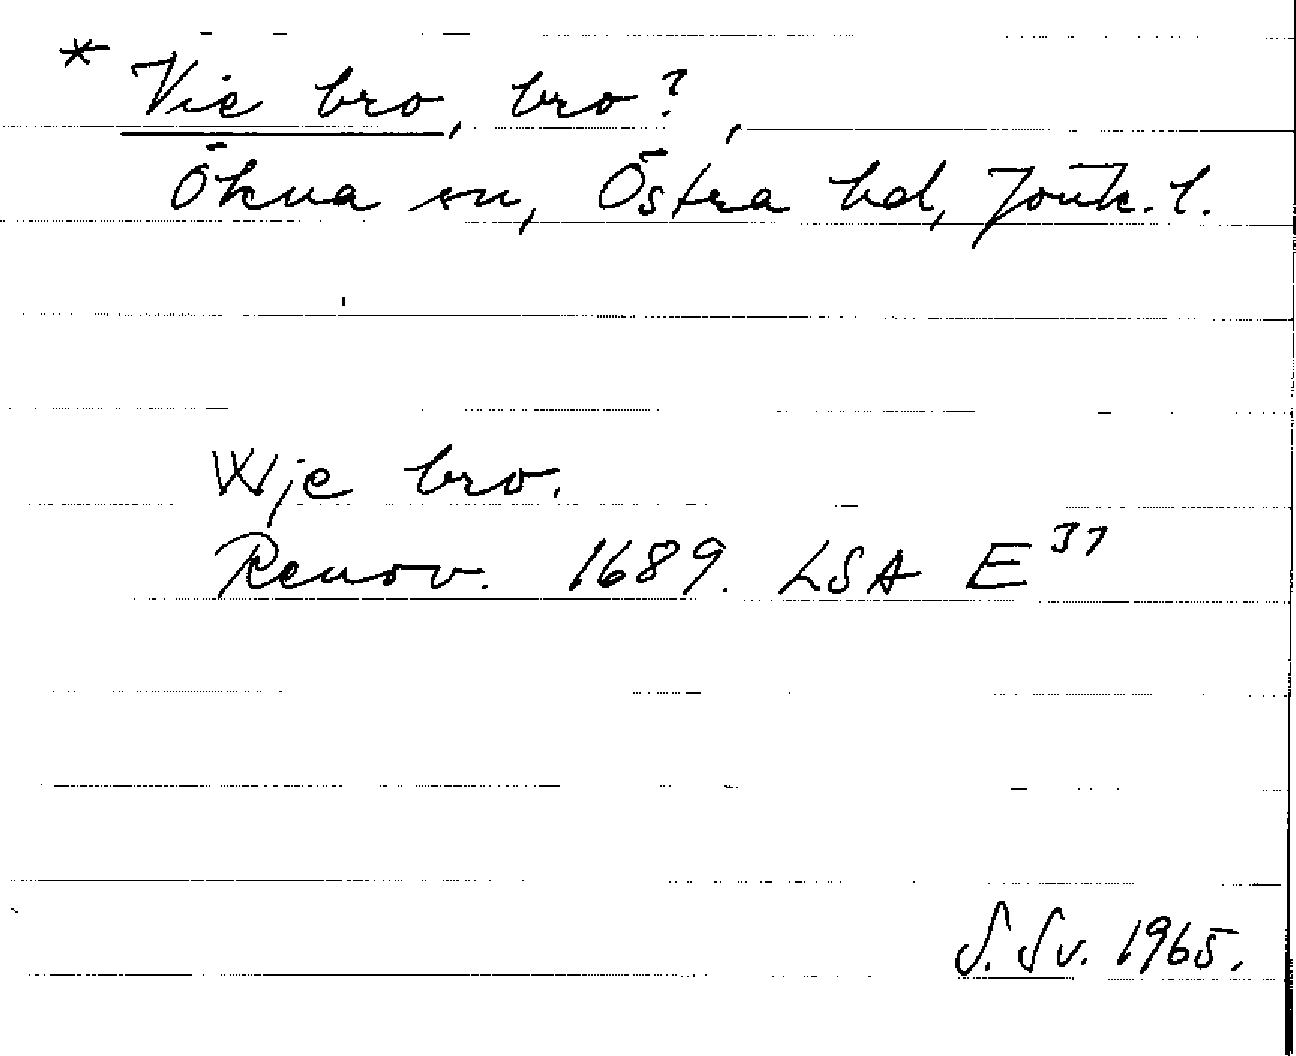 * Vie bro, bro?,
Ökna sn, Östra hd, Jönk. l.
Wje bro.
Renov. 1689. LSA E 37
S. Sv. 1965.